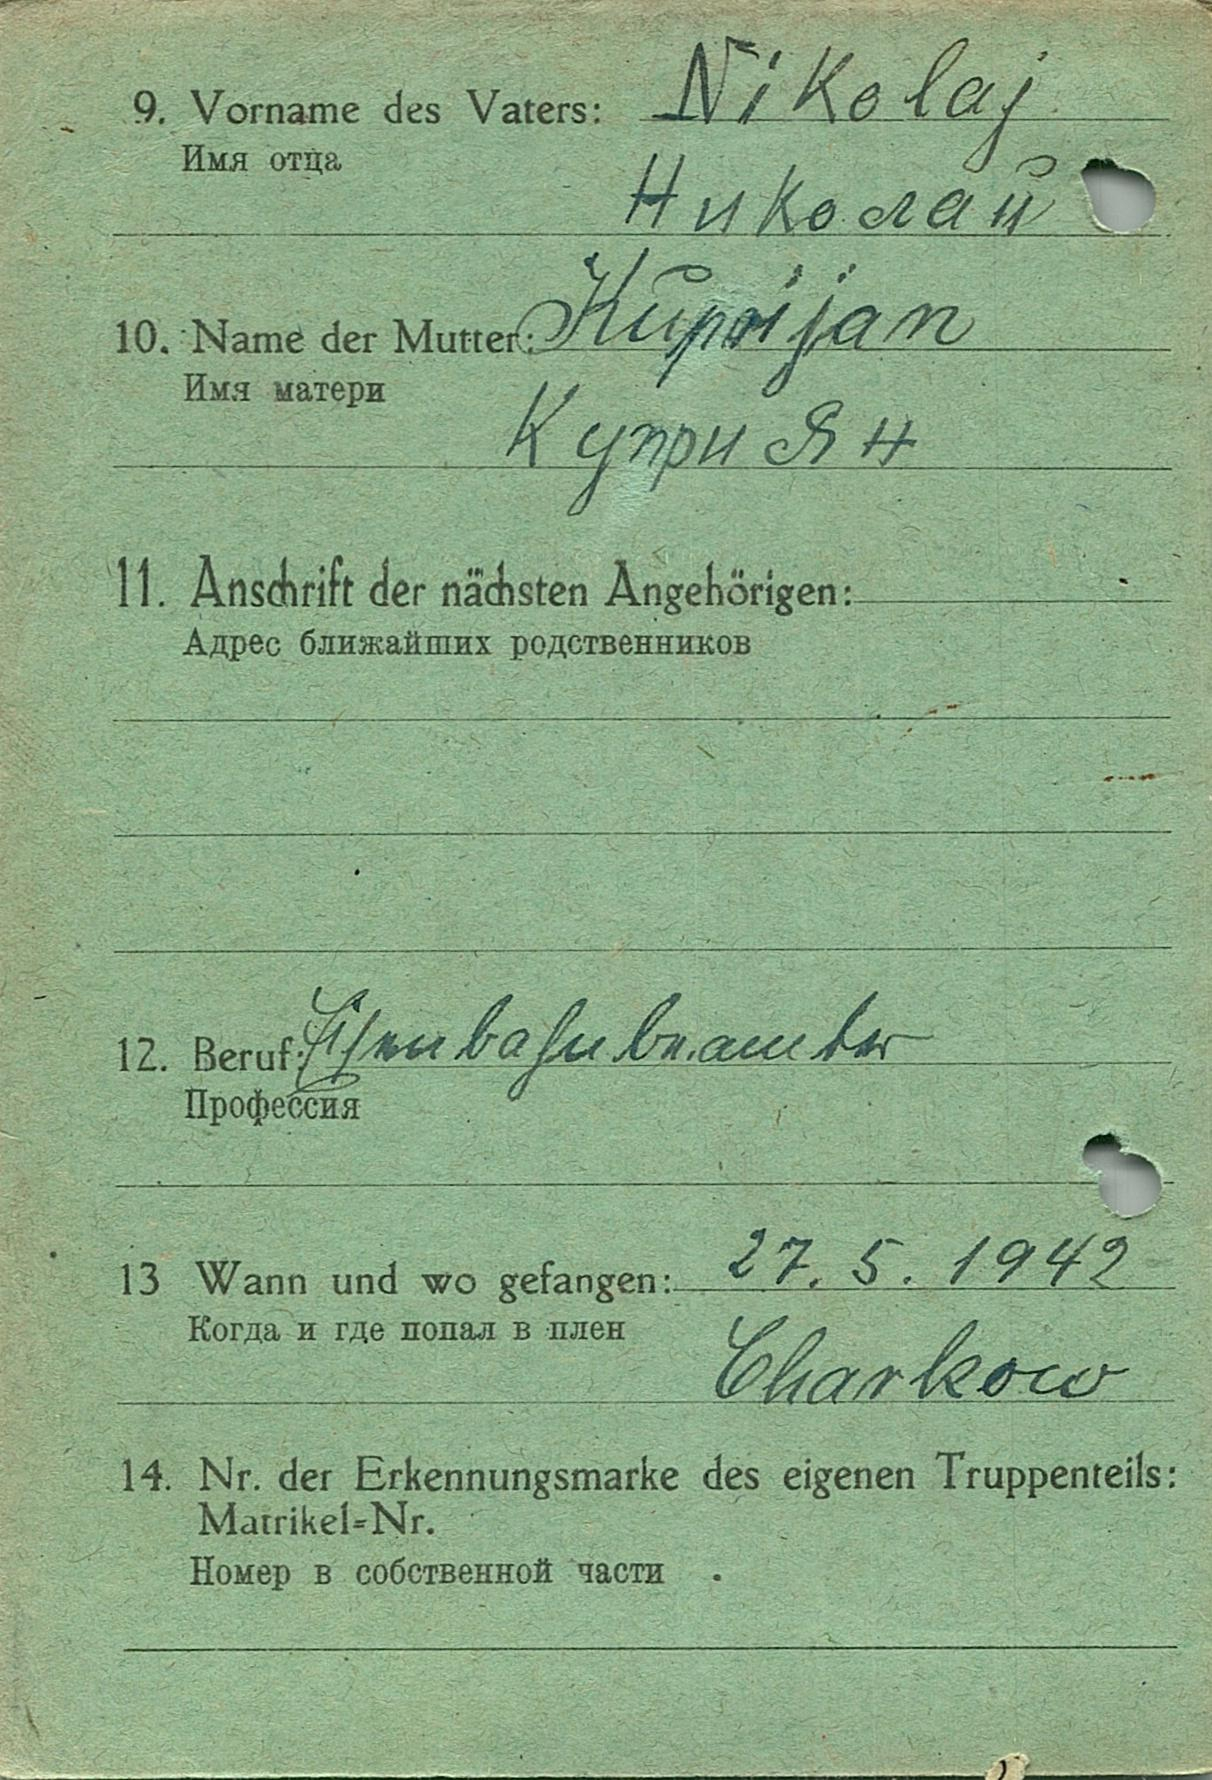 9. Vorname des Vaters: Nikolaj
Имя отца
Николай
10. Name der Mutter: Kuprijan
Имя матери
Куприян
11. Anschrift der nächsten Angehörigen:
Адрес ближайших родственников
12. Beruf: Eisenbahnbeamter
Профессия
13 Wann und wo gefangen: 27. 5. 1942
Когда и где попал в плен
Charkow
14. Nr. der Erkennungsmarke des eigenen Truppenteils:
Matrikel-Nr.
Номер в собственной части